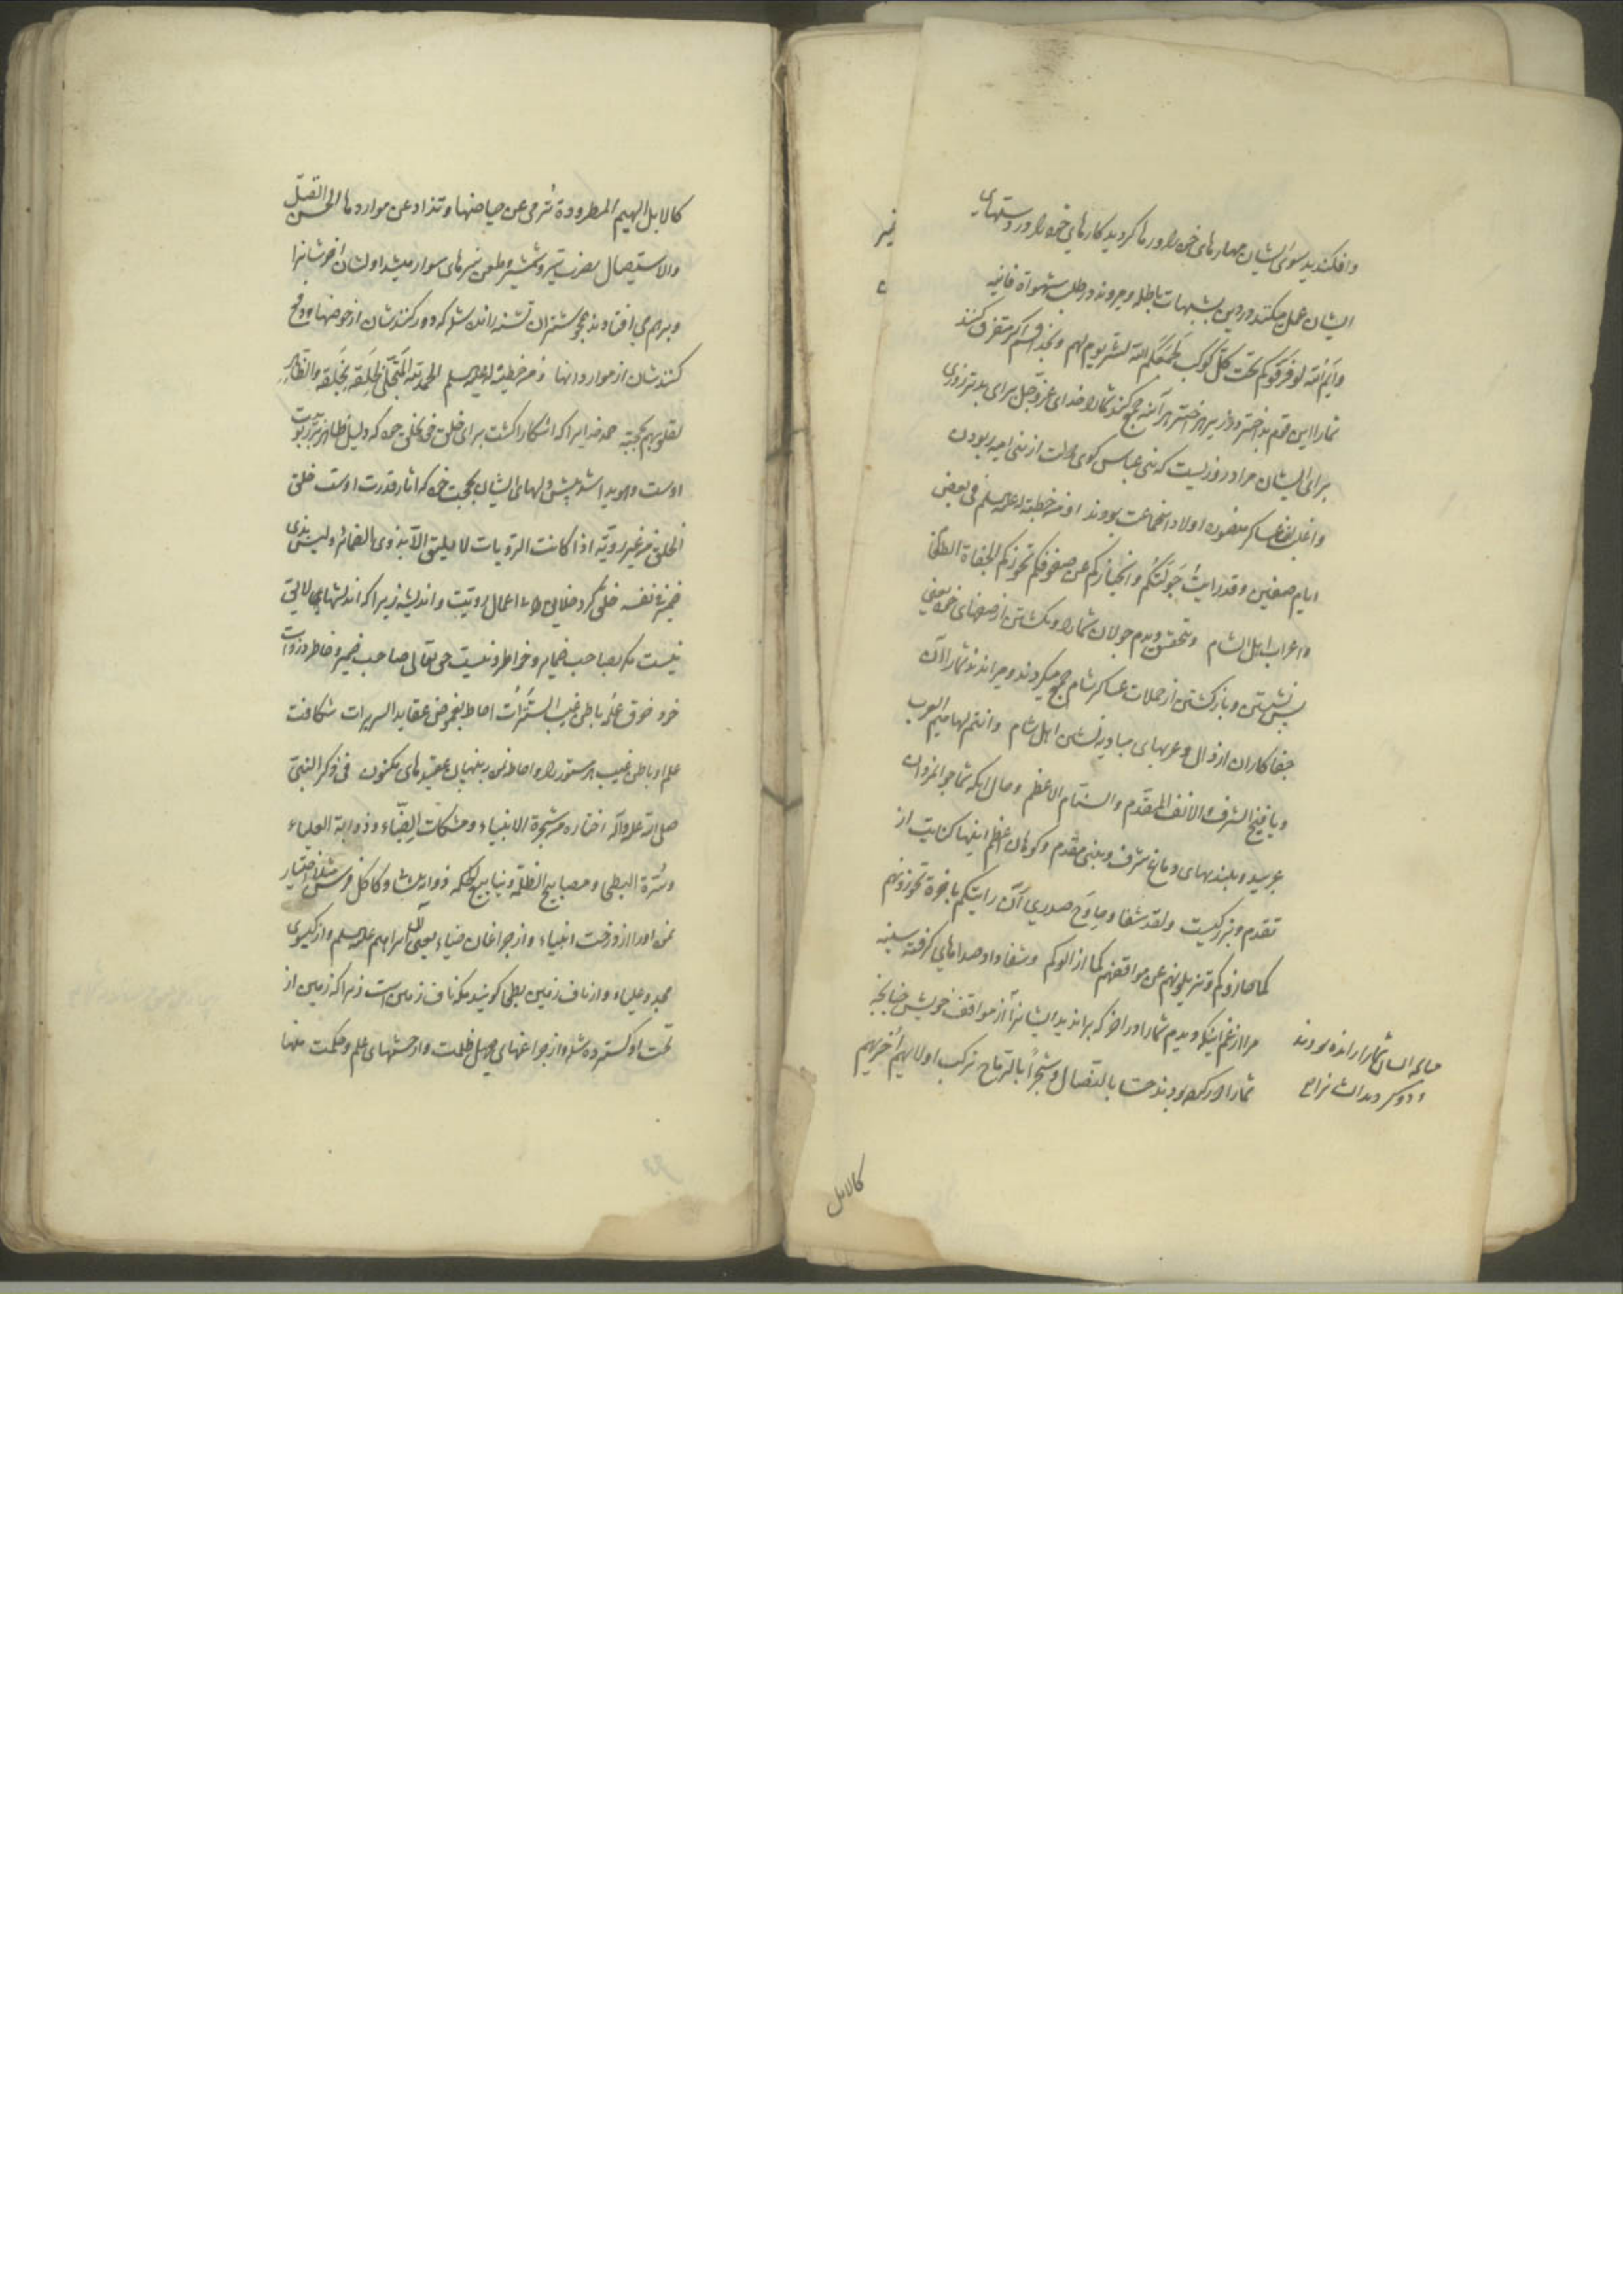 وافکندید بسوی ایشان مهارهای خود را و رها کردید کارهای خود را در دستهای
ایشان عمل میکنند در دین بشبهات باطله و میروند در طلب شهوات فانیه
وایم الله لو فرقوکم تحت کل کوکب لجمعکم الله لشر یوم لهم و بخدا قسم اکر متفرق کنند
شمارا این قوم بد اختر در زیر هر اختر هر آینه جمع کند شمارا خدای عز و جل برای بدترین روزی
برای ایشان مراد روزیست که بنی عباس کوی دولت از بنی امیه ربودن
واغلب عساکر منصور اولاد انجماعت بودند و من خطبة له علیه السلم فی بعض
ایام صفین وقد رایت جولتکم وانحیازکم عن صفوفکم تحوزکم الجفاة الطغام
واعراب اهل الشام و بتحقیق دیدم جولان شمارا و بکشتن از صفهای خود یعنی
پس نشستن و بازکشتن از حملات عساکر شام جمع میکردند و میراندند شمارا آن
جفاکاران ارذال و عربهای بادیه نشین اهل شام وانتم لهامیم العرب
ویافیخ الشرف والانف المقدم والسنام الاعظم و حال انکه شما جوانمردان
عربید و بلندیهای دماغ شرف و بینی مقدم و کوهان اعظم اینها کنایت از
تقدم و بزرکیست ولقد شفا وحاوح صدری أن رایتکم باخرة تحوزونهم
کما حازوکم وتزیلونهم عن مواقفهم کما ازالوکم و شفا داد صداهای کرفته سینه
مرا از غم اینکه دیدم شمارا در اخر که براندید ایشانرا از مواقف خویش چنانچه
شمارا دور کرده بودند حسا بالنصال وشجرا بالرماح ترکب اولاهم اخریهم
چنانچه ایشان شمارا رانده بودند
و دور کردید ایشانرا
کالابل
کالابل الهیم المطرودة ترمی عن حیاضها وتذاد عن مواردها الحس القتل
والاستیصال بضرب تیر و شمشیر و طعن نیزهای سوار میشد اولشان اخرشانرا
و برهم می افتادند همچو شتران تشنه رانده شده که دور کنندشان از حوضها و دفع
کنندشان از موارد انها و من خطبة له علیه السلم الحمد لله المتجلی لخلقه بخلقه والظاهر
لقلوبهم بحجته حمد خدایرا که اشکارا کشت برای خلق خود بخلق خود که دلیل ظاهر بر ربوبیت
اوست و هویدا شد پیش دلهای ایشان بحجت خود که اثار قدرت اوست خلق
الخلق من غیر رویة اذ کانت الرویات لا یلیق الا بذوی الضمائر ولیس بذی
ضمیر فی نفسه خلق کرد خلایق را بی اعمال رویت و اندیشه زیرا که اندیشهای لایق
نیست مکر بصاحب ضمایر و خواطر و نیست حق تعالی صاحب ضمیر و خاطر در ذات
خود خرق علمه باطن غیب السترات احاط بغموض عقاید السریرات شکافت
علم او باطن غیب هر مستور را و احاطه نمود به پنهان عقیدهای مکنون فی ذکر النبی
صلی الله علیه وآله اختاره من شجرة الانبیاء ومشکات الضیاء وذؤابة العلیاء
وسرة البطحا ومصابیح الظلمة وینابیع الحکمة
نمود اورا از درخت انبیاء و از چراغان ضیاء یعنی آل ابراهیم علیه السلم و از کیسوی
مجد و علیاء و از ناف زمین بطحا کویند مکه ناف زمین است زیرا که زمین از
تحت او کسترده شد و از چراغهای ظلمت و از چشمهای علم و حکمت منها